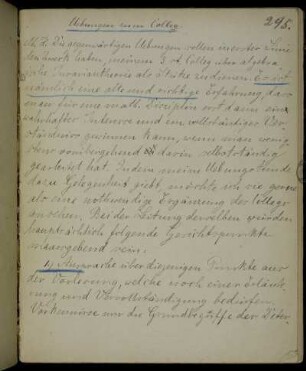 Uebungen zum Colleg.
295.
M. H. Die gegenwärtigen Uebungen sollen in erster Linie
den Zweck haben, meinem 3 st. Colleg über algebra
ische Invariantentheorie als Stütze zu dienen. Es ist
nämlich eine alte und richtige Erfahrung, dass
man für eine math. Disciplin erst dann ein
wahrhaftes Interesse und ein vollständiges Ver
ständniss gewinnen kann, wenn man wenig
stens vorübergehend darin selbstständig
gearbeitet hat. Indem meine Uebungsstunde
dazu Gelegenheit giebt, möchte ich sie geradezu
als eine nothwendige Ergänzung des Collegs
ansehen. Bei der Leitung derselben würden
hauptsächlich folgende Gesichtspunkte
massgebend sein.
1) Aussprache über diejenigen Punkte aus
der Vorlesung, welche noch einer Erläute
rung und Vervollständigung bedürfen.
Vorkenntnisse nur die Grundbegriffe der Deter-